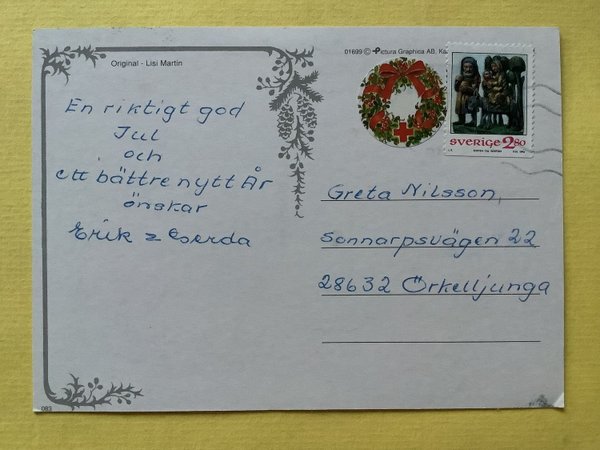 Original - Lisi Martin
01699 © Pictura Graphica AB,
En riktigt god
Jul
och
ett bättre nytt År
önskar
Erik & Gerda
SVERIGE 2.80
Greta Nilsson,
Sonnarpsvägen 22
28632 Örkelljunga
083